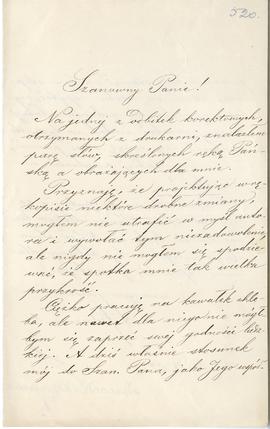 520.
Szanowny Panie!
Na jednej z odbitek korektowych,
otrzymanych z drukarni, znalazłem
parę słów, skreślonych ręką Pań-
ską a obrażających dla mnie.
Przyznaję, że projektując w rę-
kopisie niektóre drobne zmiany,
mogłem nie utrafić w myśl auto-
ra i wywołać tym niezadowolenie,
ale nigdy nie mogłem się spodzie-
wać, że spotka mnie tak wielka
przykrość.
Ciężko pracuję na kawałek chle-
ba, ale nawet dla niego nie mógł-
bym się zaprzeć swej godności ludz-
kiej. A dziś właśnie stosunek
mój do Szan. Pana, jako Jego współ-